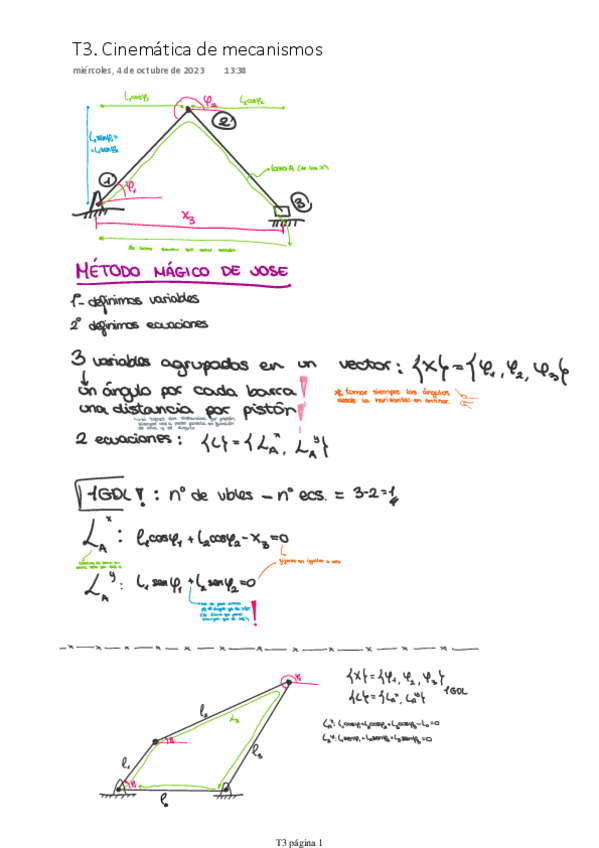 T3. Cinemática de mecanismos
miércoles, 4 de octubre de 2023 13:38
l₁cosφ₁ l₂cosφ₂
φ₂
2
l₁senφ₁=
-l₂senφ₂
1
φ₁
lazo A (de los x)
3
x₃
MÉTODO MÁGICO DE JOSE
1º- definimos variables
2º definimos ecuaciones
3 variables agrupados en un vector: {X} = {φ₁, φ₂, φ₃}
un ángulo por cada barra
una distancia por pistón
* tomar siempre los ángulos
desde la horizontal en antihor.
2 ecuaciones: {L} = {L_A^x, L_A^y}
1GDL! : nº de vbles - nº ecs. = 3-2=1
L_A^x : l₁cosφ₁ + l₂cosφ₂ - x₃ = 0
L_A^y : l₁senφ₁ + l₂senφ₂ = 0
l₂
l₁
l₃
{X} = {φ₁, φ₂, φ₃}
{L} = {L_A^x, L_A^y} 1GDL
T3 página 1